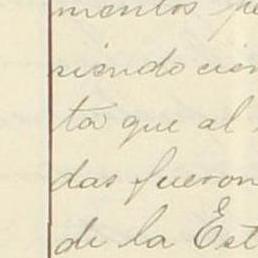 mentos pe
siendo cier
ta que al
das fueron
de la Est